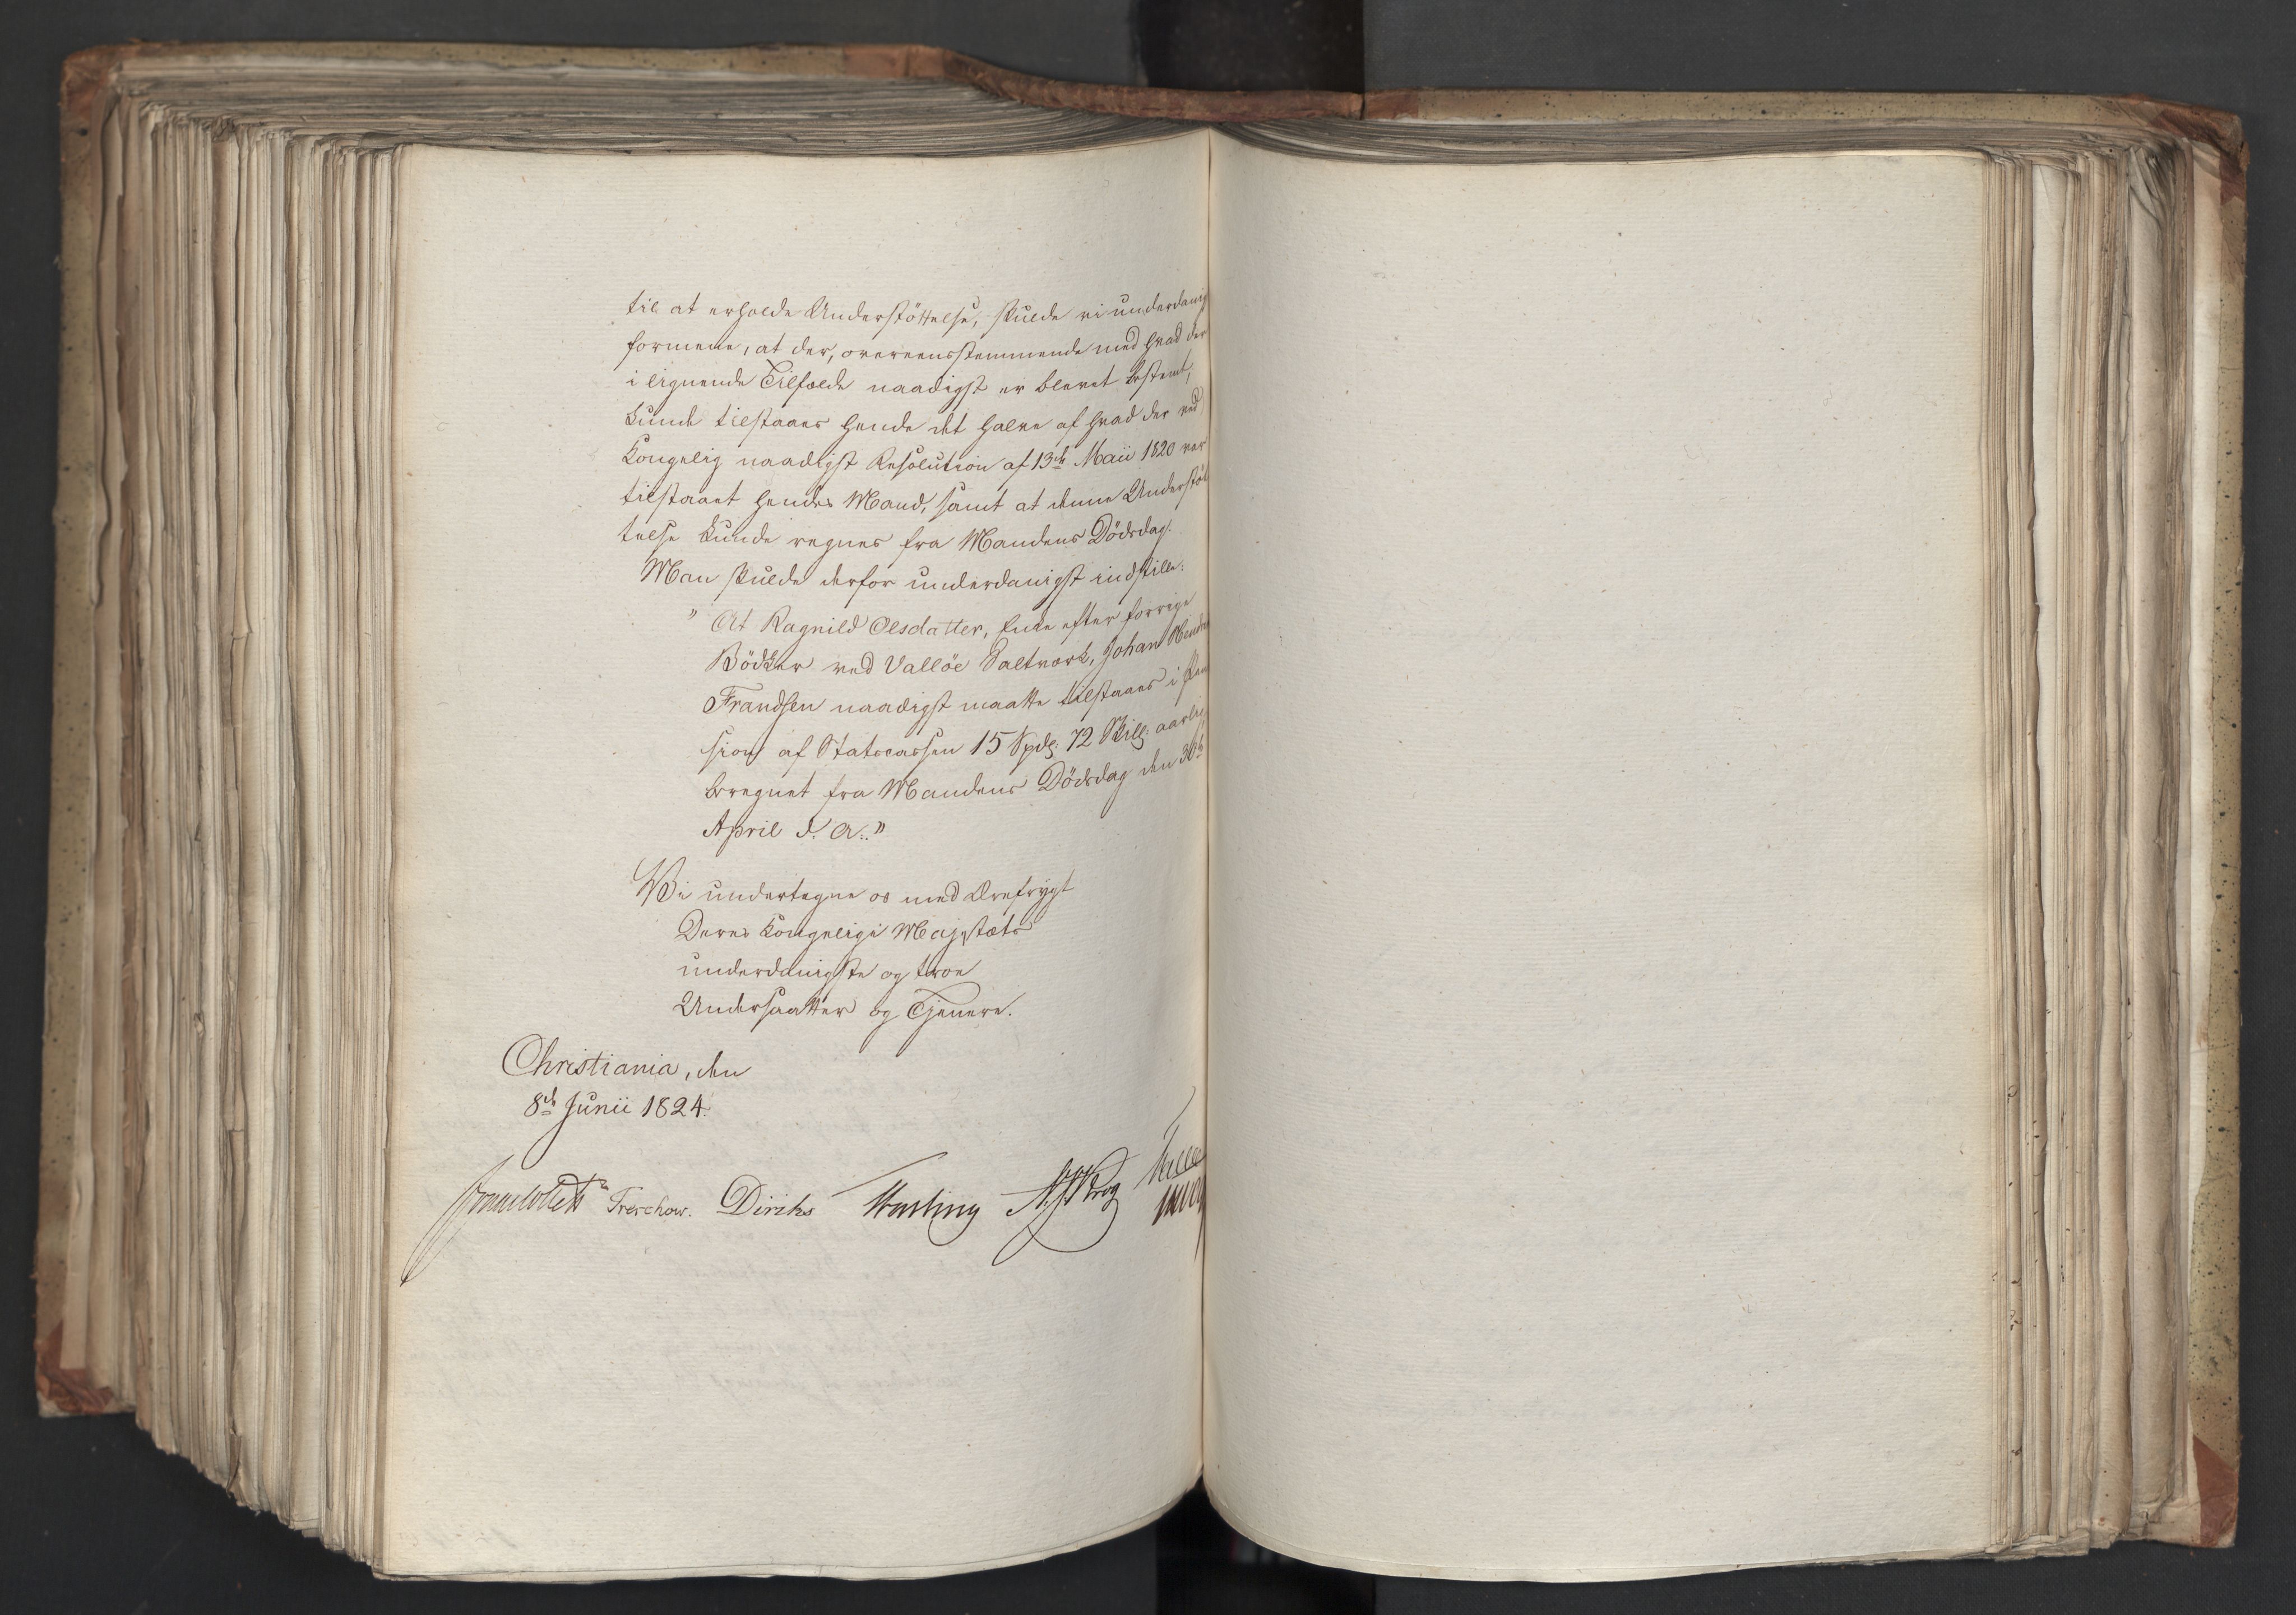 til at erholde Understöttelse, skulde vi underdanig
formene, at der, overeensstemmende med hvad der
i lignende Tilfælde naadigst er blevet bestemt,
kunde tilstaaes hende det halve af hvad der ved
Kongelig naadigst Resolution af 13de Maii 1820 var
tilstaaet hendes Mand, samt at denne Understöt
telse kunde regnes fra Mandens Dödsdag.
Man skulde derfor underdanigst indstille:
" At Ragnild Olsdatter, Enke efter forrige
Bödker ved Vallöe Saltværk, Johan Hendr
Frandsen naadigst maatte tilstaaes i Pen
sion af Statscassen 15 Spdlr. 72 Skill: aarlig,
beregnet fra Mandens Dödsdag den 30te
April d. A.."
Vi undertegne os med Ærefrygt
Deres Kongelige Majestæts
underdanigste og troe
Undersaatter og Tjenere.
Christiania, den
8de Junii 1824.
Treschow. Diriks Fasting